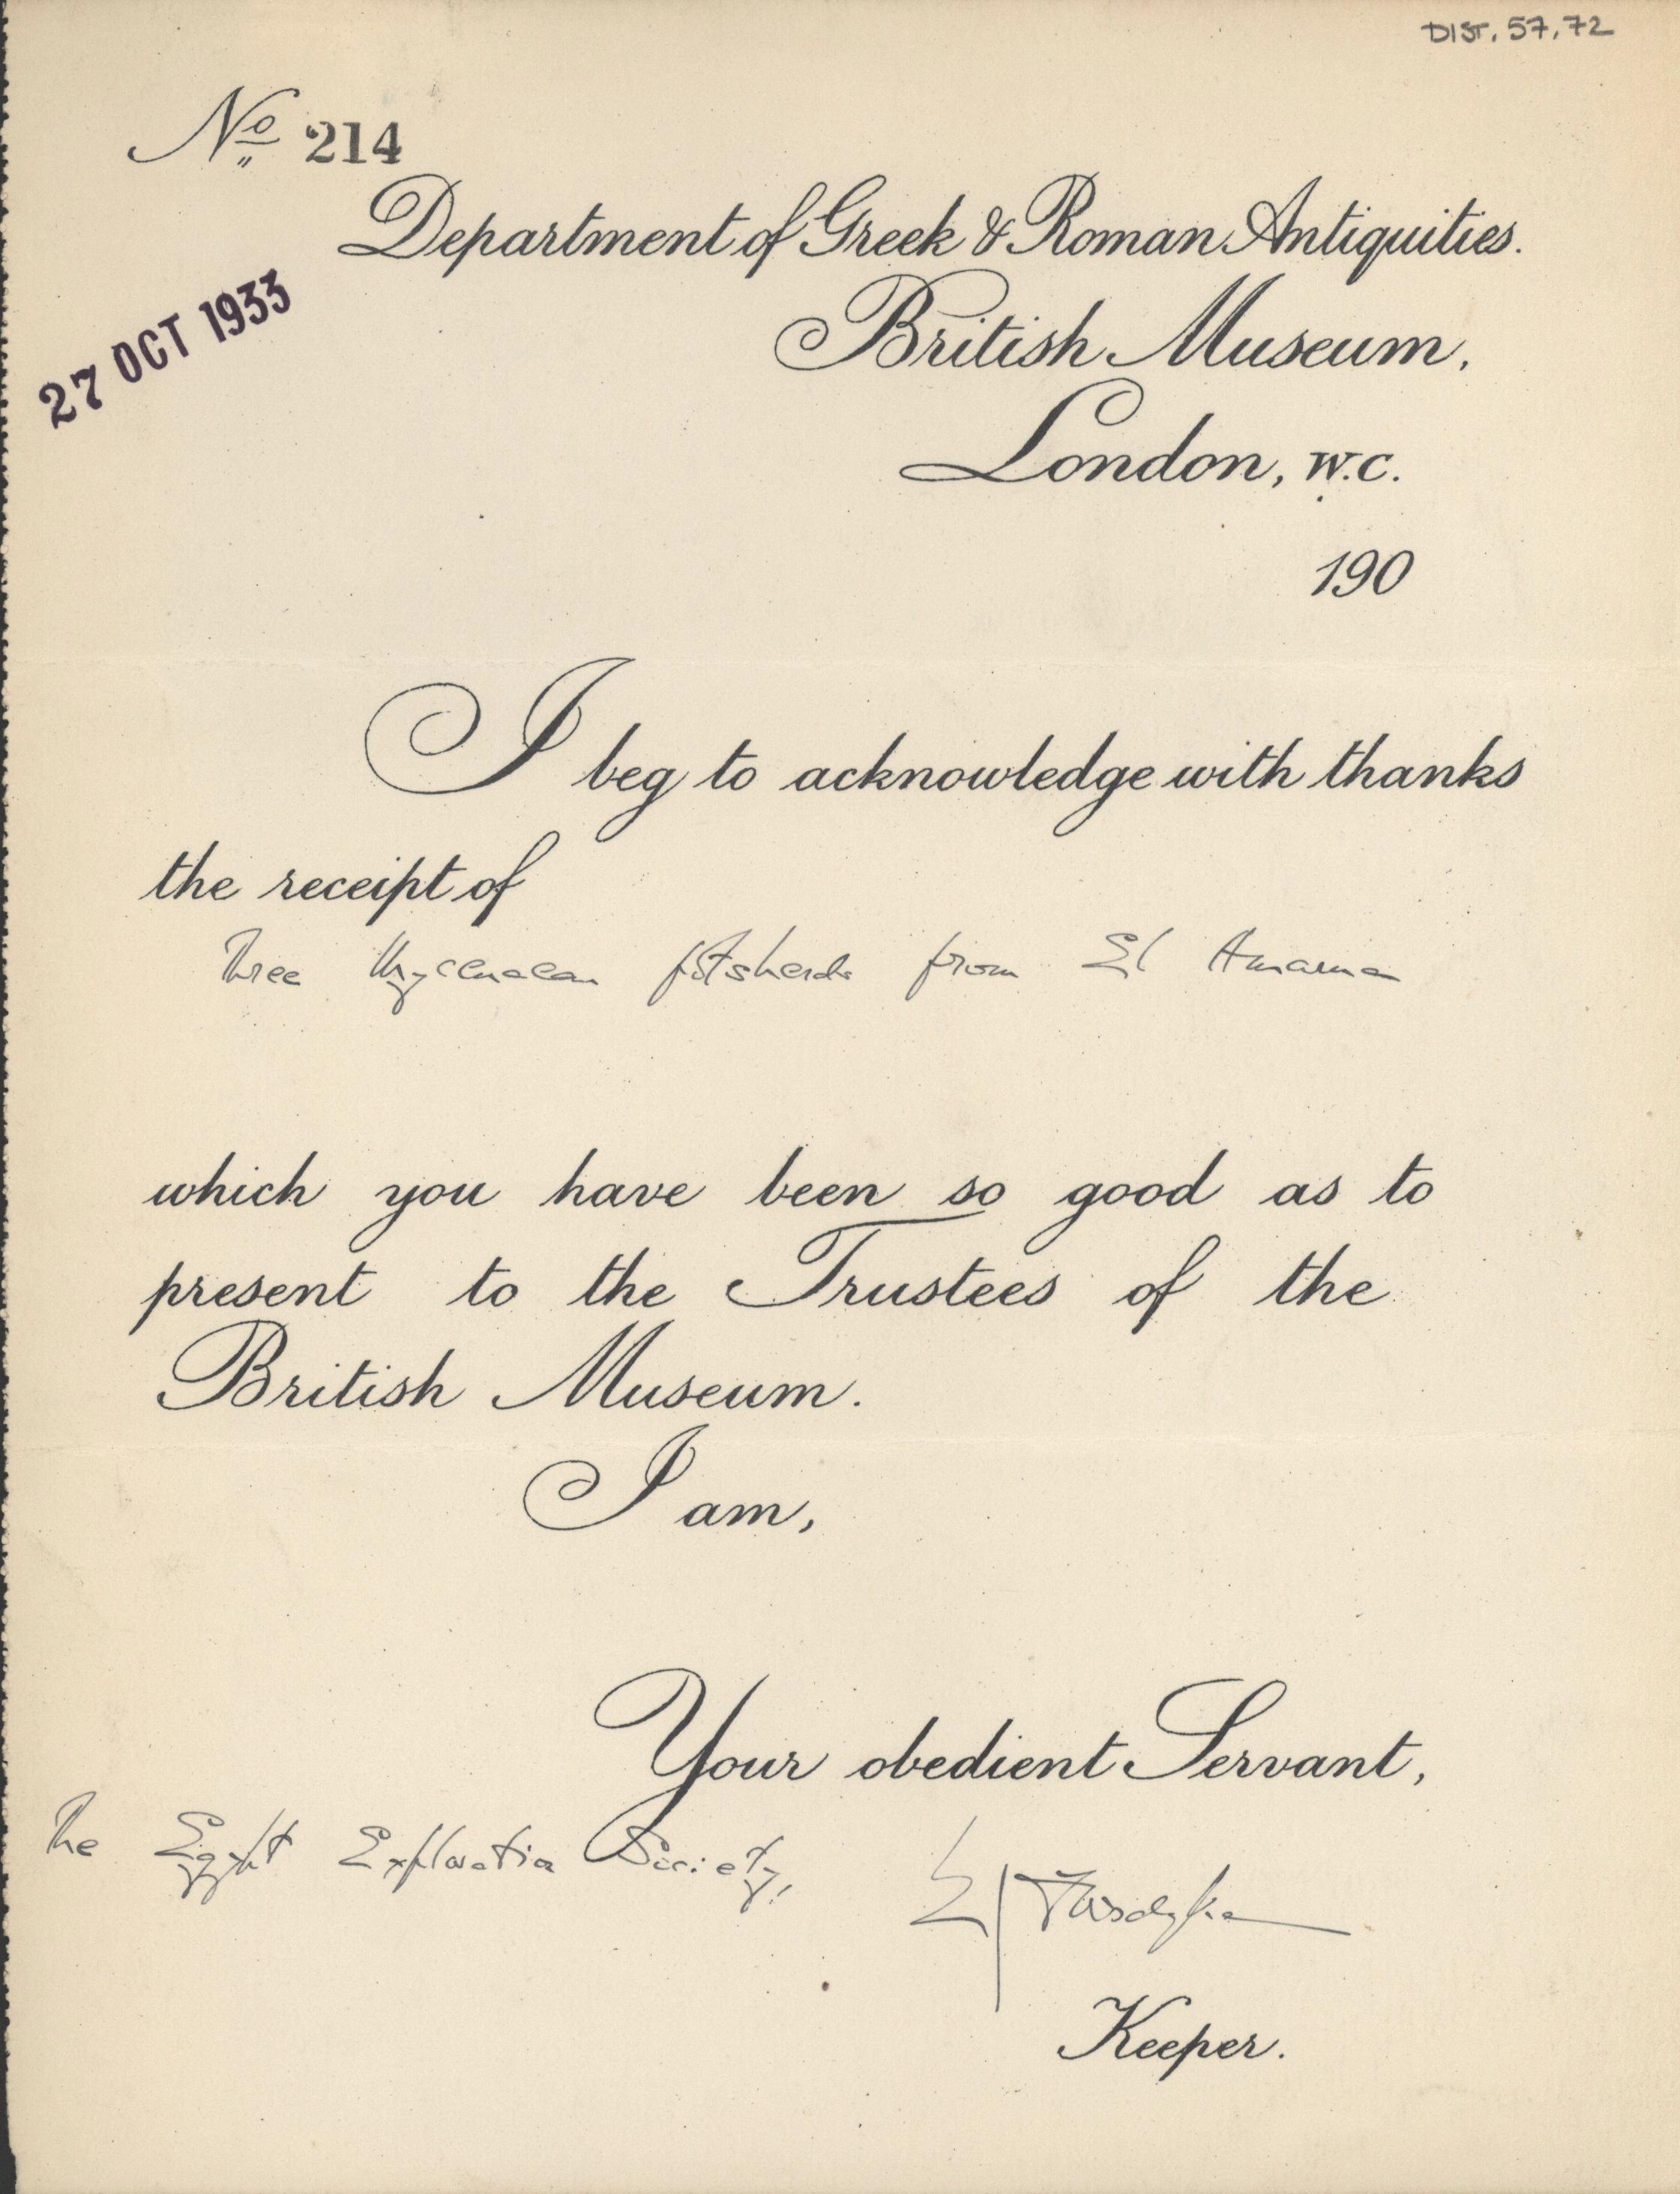 DIST. 57.72
No 214
Department of Greek & Roman Antiquities.
27 OCT 1933
British Museum,
London, W.C.
190
I beg to acknowledge with thanks
the receipt of
Three Mycenaean potsherds from El Amarna
which you have been so good as to
present to the Trustees of the
British Museum.
I am,
Your obedient Servant,
The Egypt Exploration Society,
EJ Forsdyke
Keeper.